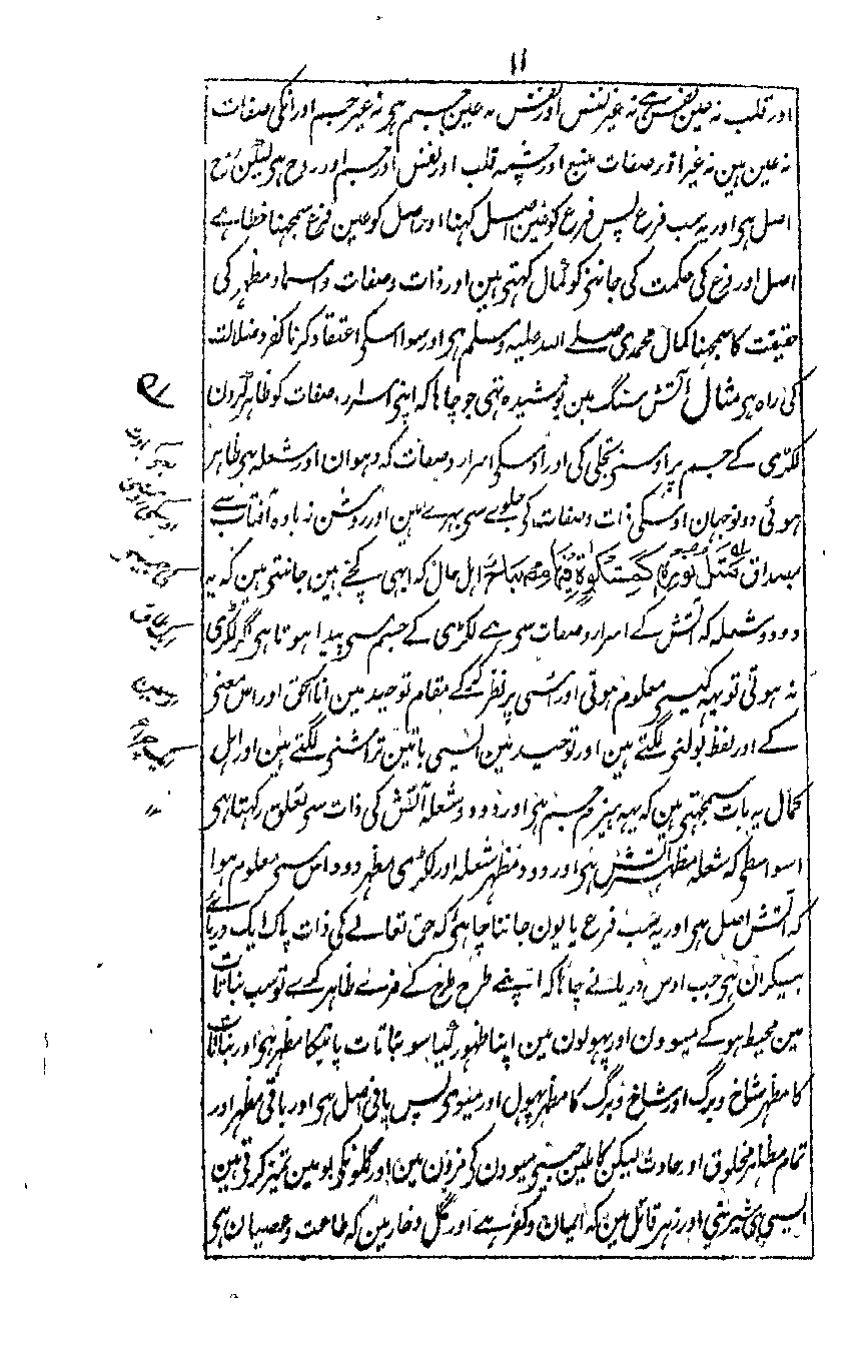 ۱۱
اور قلب نہ عین نفس ہے نہ غیر نفس اور نفس نہ عین جسم ہی نہ غیر جسم اور انکی صفات
نہ عین ہین نہ غیر اور صفات منبع اور چشمہ قلب اور نفس اور جسم اور روح ہی لیکن روح
اصل ہی اور یہ سب فرع پس فرع کو عین اصل کہنا اور اصل کو عین فرع سمجہنا خطا ہے
اصل اور فرع کی حکمت کی جاننی کو کمال کہتی ہین اور ذات و صفات و اسماء و مظہر کی
حقیقت کا سمجہنا کمال محمدی صلے اللہ علیہ وسلم ہی اور سوا اسکی اعتقاد کرنا کفر و ضلالت
کی راہ ہی مثال آتش سنگ مین پوشیدہ تہی جو چاہا کہ اپنی اسرار و صفات کو ظاہر کرون
لکڑی کے جسم پر اوسنی تجلی کی اور اوسکی اسرار و صفات کہ دہوان اور شعلہ ہی ظاہر
ہوئی دونو جہان اوسکی ذات و صفات کی جلوے سی بہرے ہین اور روشن زیادہ آفتاب سے
بمصداق مَثَلُ نُورِهٖ كَمِشْكٰوةٍ فِيْهَا مِصْبَاحٌ اہل حال کہ ابہی کچے ہین جانتی ہین کہ یہ
دود و شعلہ کہ آتش کے اسرار و صفات سی ہے لکڑی کے جسم سی پیدا ہوتا ہی اگر لکڑی
نہ ہوتی تو یہہ کیسی معلوم ہوتی اور اسی پر نظر کرکے مقام توحید مین انا الحق اور اس معنی
کے اور لفظ بولنی لگتے ہین اور توحید مین ایسی باتین تراشنی لگتے ہین اور اہل
کمال یہ بات سمجہتی ہین کہ یہہ ہیزم جسم ہی اور دود و شعلہ آتش کی ذات سی تعلق رکہتا ہی
اسواسطی کہ شعلہ مظہر آتش ہی اور دود مظہر شعلہ اور لکڑی مظہر دود اس سی معلوم ہوا
کہ آتش اصل ہی اور یہ سب فرع یا یون جاننا چاہئی کہ حق تعالے کی ذات پاک ایک دریائے
بیکران ہی جب اوس دریا نے چاہا کہ اپنے طرح طرح کے مزے ظاہر کرے تو سب نباتات
مین محیط ہو کے میوون اور پہولون مین اپنا ظہور کیا سو نباتات پانیکا مظہر ہی اور نباتات
کا مظہر شاخ و برگ اور شاخ و برگ کا مظہر پہول اور میوہ پس پانی اصل ہی اور باقی مظہر اور
تمام مظاہر مخلوق اور حادث لیکن کاملین جیسی میوون کی مزون مین اور گلونکی بو مین تمیز کرتی ہین
ایسی ہی شیرینی اور زہر قاتل مین کہ ایمان و کفر ہے اور گل و خار مین کہ طاعت و عصیان ہی